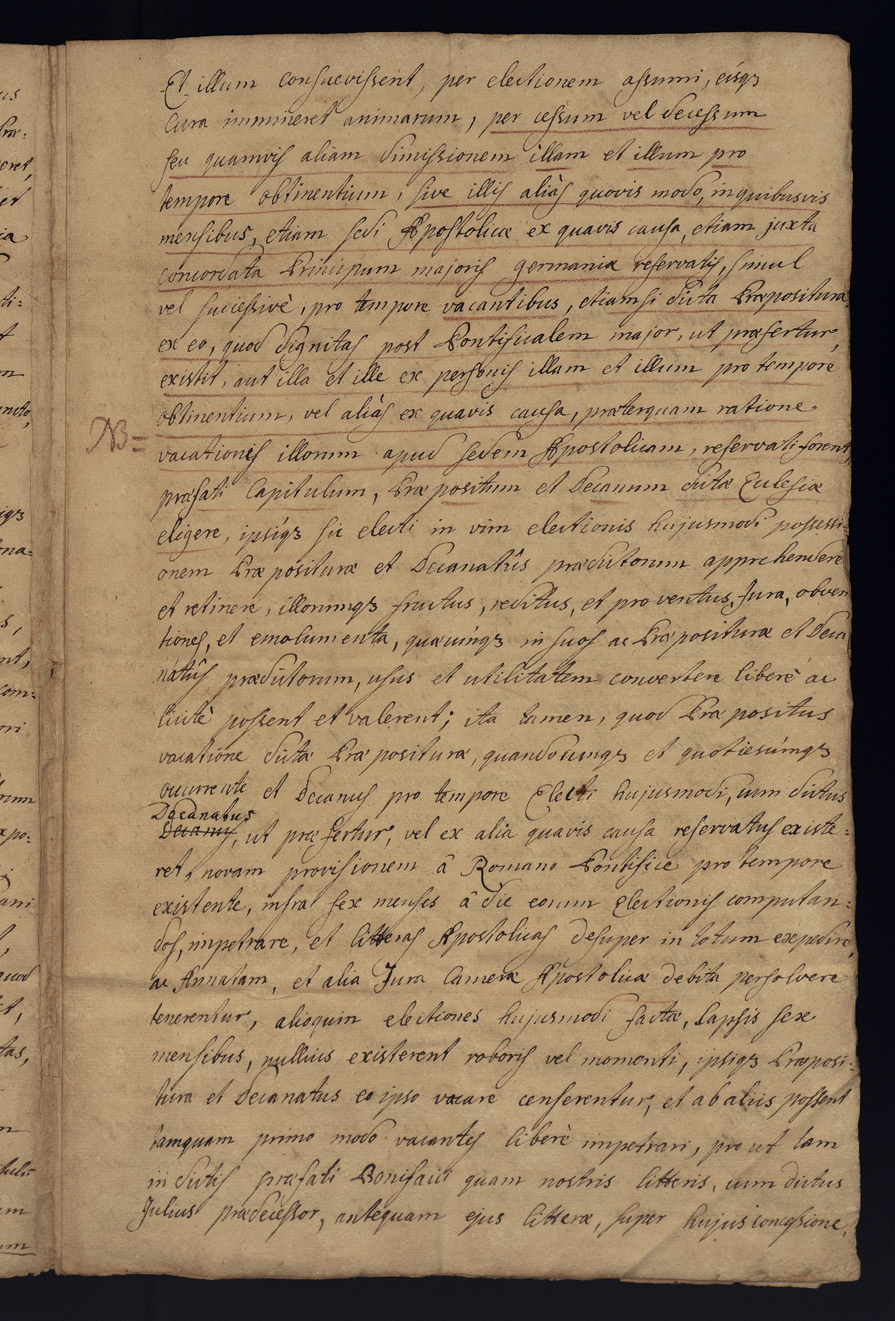 Et illum consuevissent, per electionem assumi, eisqз
cura immineret animarum, per cessum vel decessum
seu quamvis aliam dimissionem illam et illum pro
tempore obtinentium, sive illis aliàs quovis modo, in quibusvis
mensibus, etiam sedi Apostolicæ ex quavis causa, etiam juxta
concordata Principum majoris germaniæ reservatis, simul
vel successivè, pro tempore vacantibus, etiamsi dicta Præpositura
ex eo, quod dignitas post Pontificalem major, ut præfertur,
existit, aut illa et ille ex personis illam et illum pro tempore
obtinentium, vel aliàs ex quavis causa, præterquam ratione
NB= vacationis illorum apud sedem Apostolicam, reservati forent,
præfati Capitulum, Præpositum et Decanum dictæ Ecclesiæ
eligere, ipsiqз sic electi in vim electionis hujusmodi possessi:
onem Præposituræ et Decanatûs prædictorum apprehendere
et retinere, illorumqз fructus, reditus, et proventus, Jura, obven
tiones, et emolumenta, quæcunqз in suos ac Præposituræ et Deca
natûs prædictorum, usus et utilitatem convertere liberè ac
licitè possent et valerent; ita tamen, quod Præpositus
vacatione dictæ Præposituræ, quandocunqз et quotiescúnqз
occurrente et Decanus pro tempore Electi hujusmodi, cum dictus
Decanatus
Decanus, ut præfertur, vel ex alia quavis causa reservatus existe:
ret, novam provisionem â Romano Pontifice pro tempore
existente, infra sex menses â die eorum Electionis computan:
dos, impetrare, et litteras Apostolicas desuper in totum expedire,
ac Annatam, et alia Jura Cameræ Apostolicæ debita persolvere
tenerentur, alioquin electiones hujusmodi factæ, Lapsis sex
mensibus, nullius existerent roboris vel momenti, ipsiqз Præposi:
tura et Decanatus eo ipso vacare censerentur, et ab aliis possent
tamquam primo modo vacantes liberè impetrari, pro ut tam
in dictis præfati Bonifacii quam nostris litteris, cum dictus
Julius prædecessor, antequam ejus litteræ, super hujus concessione,